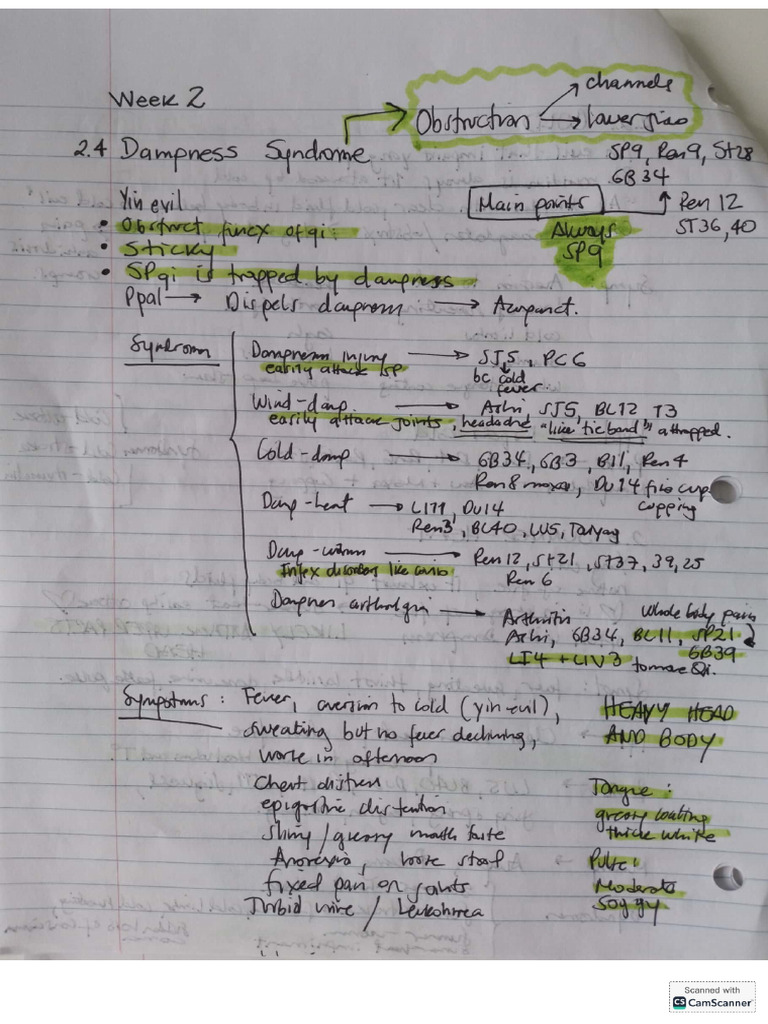 Week 2
Obstruction → channels
→ lower jiao
2.4 Dampness Syndrome
SP9, Ren 9, St28
GB 34
Main points
Ren 12
ST36, 40
Always
SP9
Yin evil
• Obstruct funcx of qi
• Sticky
• SPqi is trapped by dampness.
Ppal → Dispels dampness → Acupunct.
Syndrom
Dampness injury → SJ5, PC6
easily attack SP
bc cold
fever.
Wind-damp → Ashi, SJ5, BL12 T3
easily attack joints, headache "like tie band"
Cold-damp → GB34, GB3, B11, Ren 4
Ren 8 moxa, Du14 fire cup
cupping
Damp-heat → LI11, Du14
Ren3, BL40, LU5, Taiyag
Damp-warm → Ren 12, St21, St37, 39, 25
Infex disorders like
Ren 6
Dampnes → Arthritis
Whole body pain
Ashi, GB34, BL11, SP21
GB39
LI4 + LIV3 to move Qi.
Symptoms: Fever, aversion to cold (yin-evil),
sweating but no fever declining,
worse in afternoon
HEAVY HEAD
AND BODY
Chest distress
epigastric distention
slimy/greasy mouth taste
Anorexia, loose stool
fixed pain on joints
Turbid urine / Leukohrrea
Tongue:
greasy coating
thick white
Pulse:
Moderate
Soggy
Scanned with
CS CamScanner